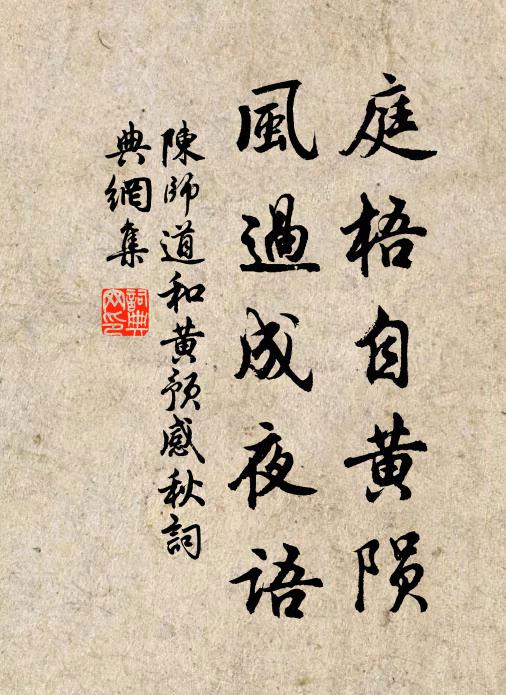 庭梧自黄陨
風過成夜語
陳師道和黄預感秋詞
典網集
詞典網印